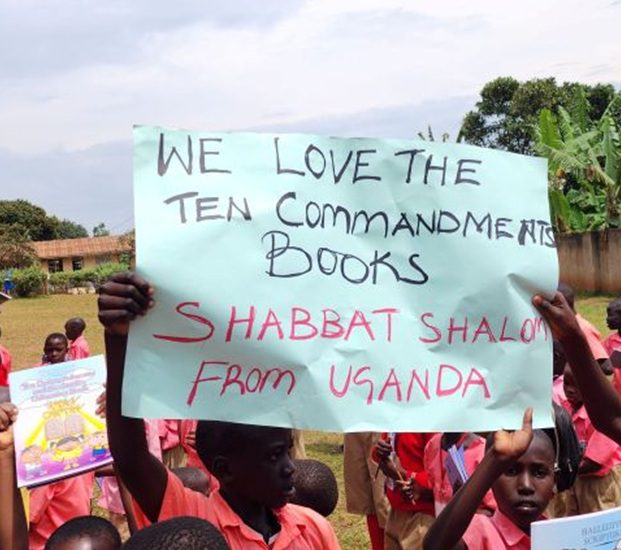 WE LOVE THE
TEN COMMANDMENTS
BOOKS
SHABBAT SHALOM
FROM UGANDA